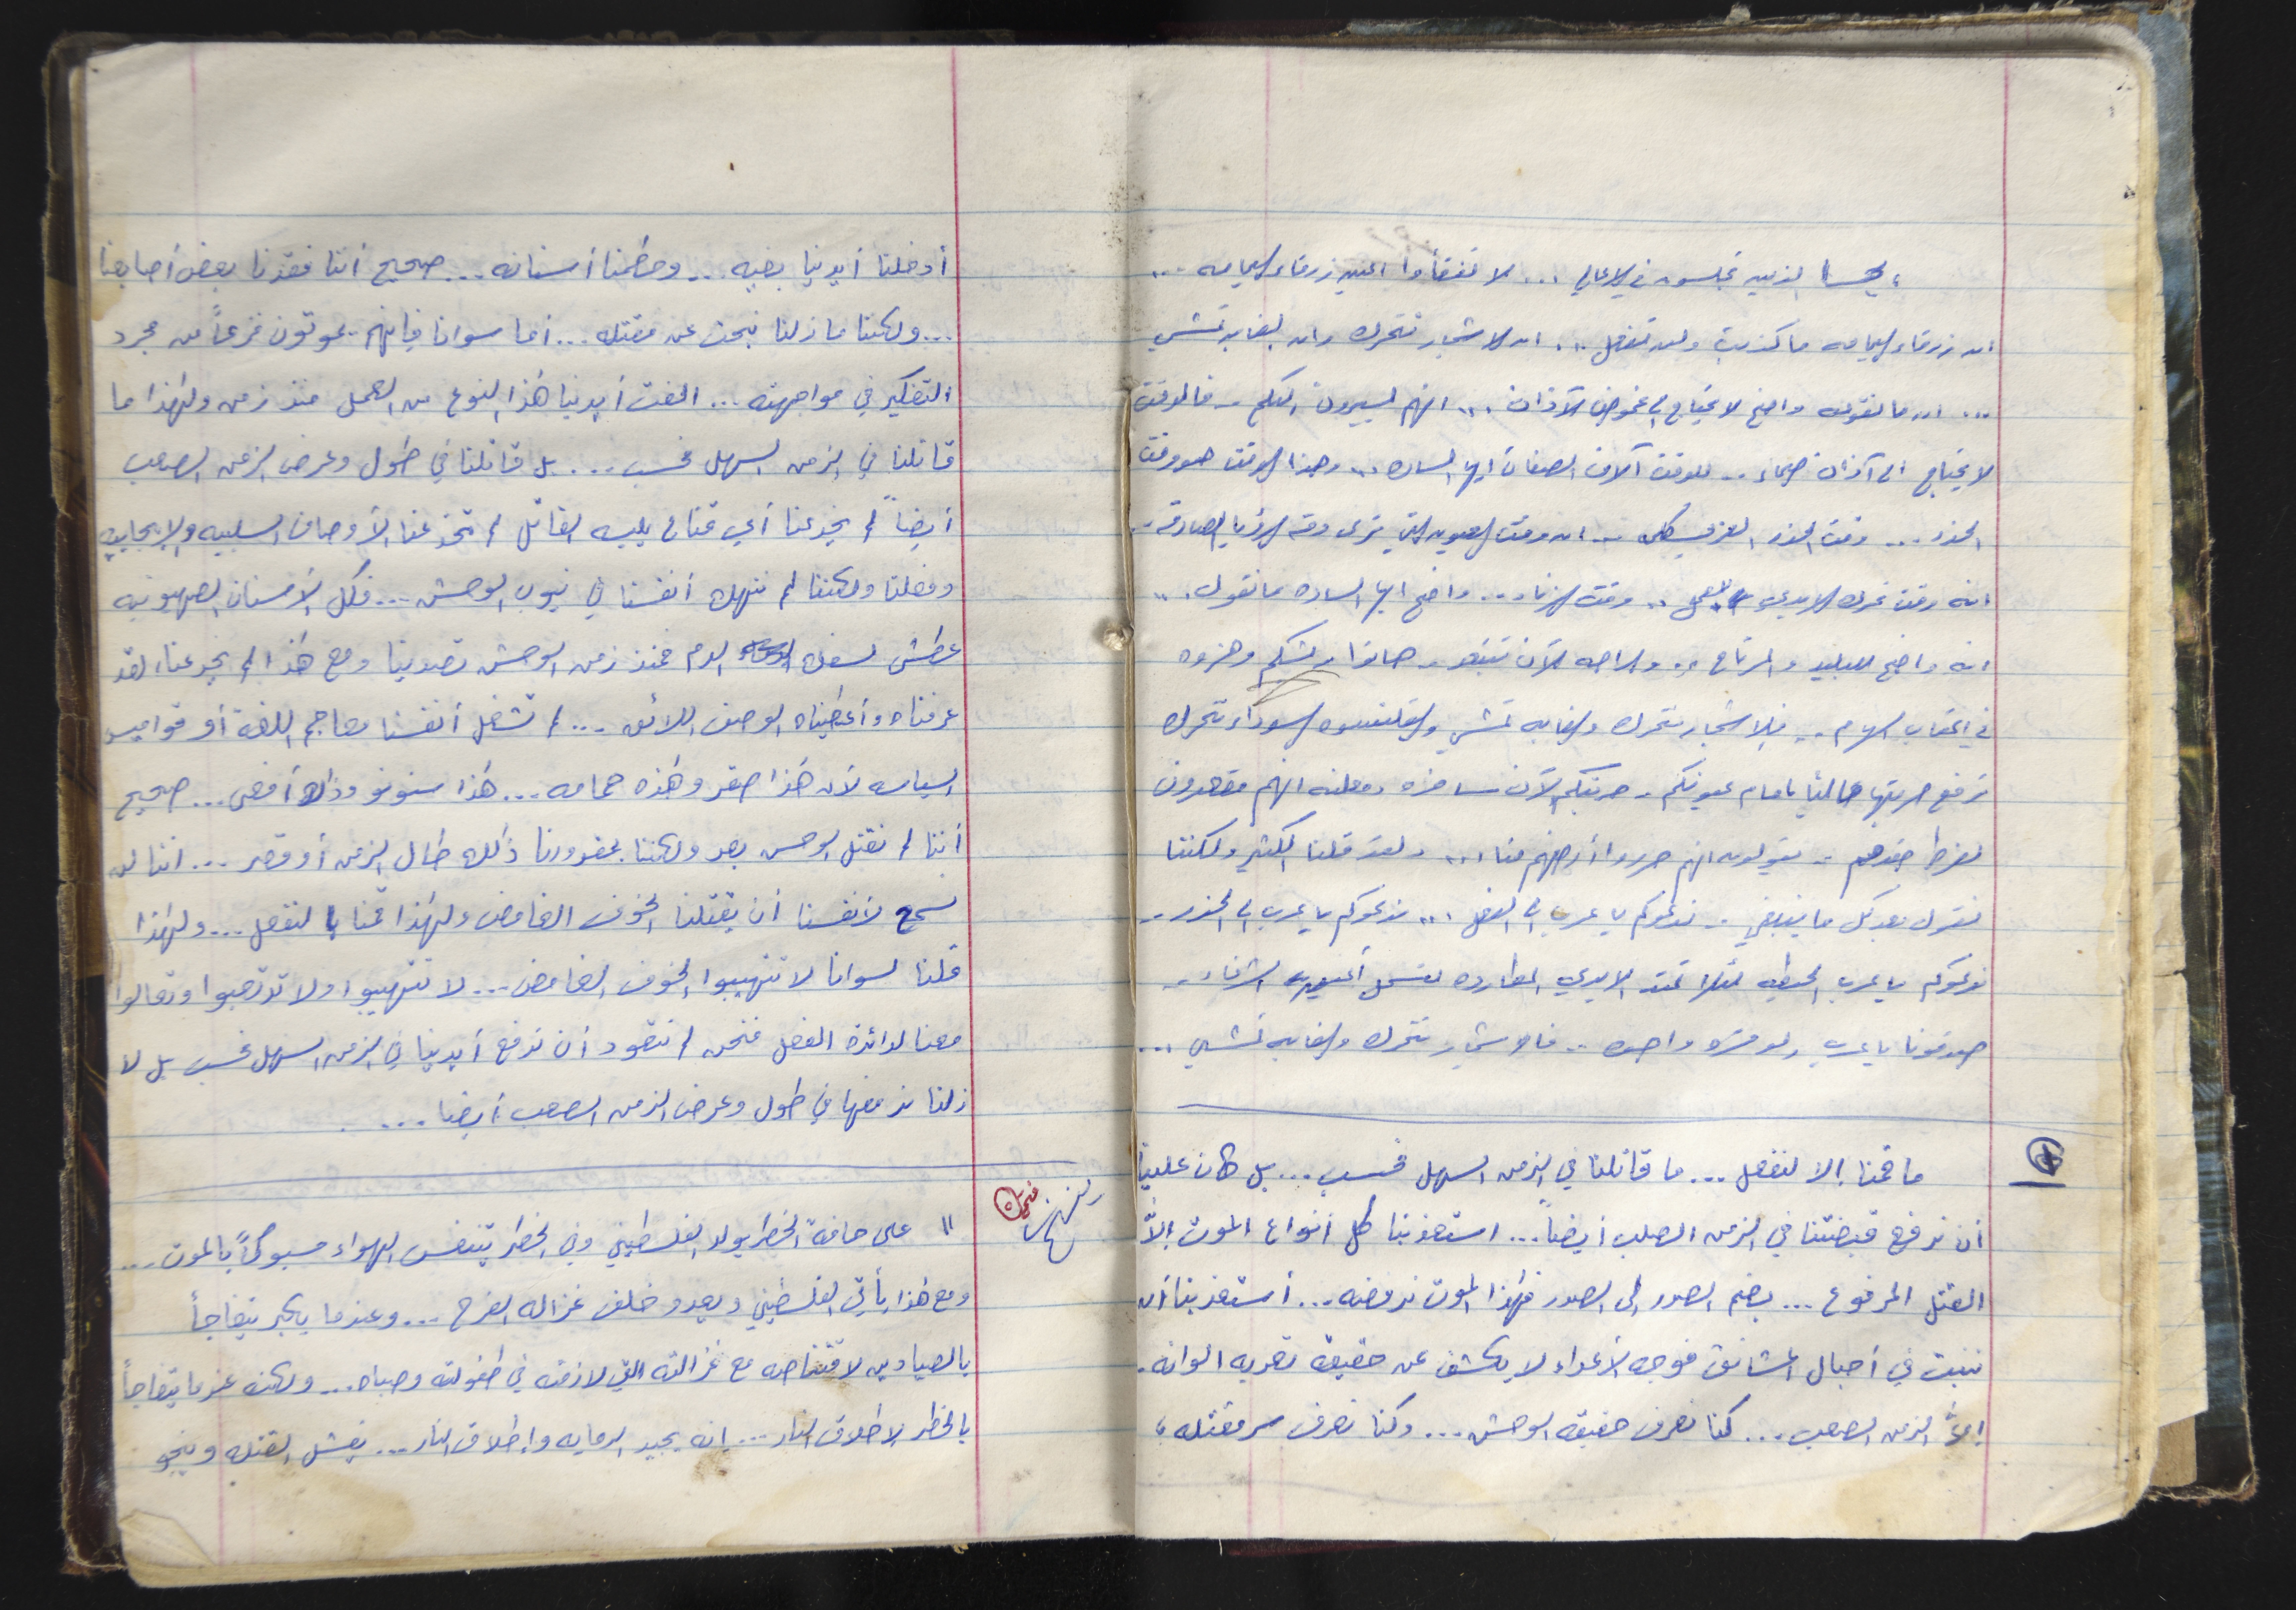 ايها الذين تجلسون في الاعالي ... لا تفقأوا اعين زرقاء اليمامه ...
ان زرقاء اليمامه ما كذبت ولن تفعل ... ان الاشجار تتحرك وان الغابه تمشي
... ان ما نقوله واضح لا يحتاج الى غموض الآذان ... انهم يسيرون اليكم .. فالوقت
لا يحتاج الى آذان صماء .. للوقت آلاف الصفات أيها الساده .. وهذا الوقت هو وقت
الحذر ... وقت الحذر العربي ككل .. ان وقت العيون التي ترى وقت الرؤيا الصادقه ..
انه وقت تحرك الايدي .. وقت الزناد ... واضح ايها الساده ما نقول ...
انه واضح للبليد والمرتاح .. والراحه الآن تبتعد .. هاتوا وهزوه
في اعقاب اليوم .. فالاشجار تتحرك والغابه تمشي والقلنسوه السوداء تتحرك
ترفع حربتها عالياً امام عيونكم .. حربتكم الآن سافره ومعلنه انهم مقصدون
لفرط حقدهم .. يقولون انهم حرروا أرضهم منا ... ولقد قلنا الكثير ولكننا
نقول بعد كل ما ينبغي .. ندعوكم يا عرب الى الفعل ... ندعوكم يا عرب الى الحذر ..
ندعوكم يا عرب الحيطه لئلا تمتد الايدي المطارده لتسمل أعين الزرقاء ..
صدقونا يا عرب ولو مره واحده .. فالاشجار تتحرك والغابه تمشي ...
ما قمنا إلا لنفعل ... ما قاتلنا في الزمن السهل فحسب ... بل كان علينا
أن نرفع قبضتنا في الزمن الصلب أيضاً ... استعذبنا كل أنواع الموت إلاّ
القتل المرفوع ... بضم الصدر الى الصدر فهذا الموت نرفضه ... أستعذبنا أن
ننبت في أحبال المشانق فوجه الأعداء لا يكشف عن حقيقة تعرية الوانه .
إلاّ الزمن الصعب ... كنا نعرف حقيقة الوحش ... وكنا نعرف سر مقتله ،
أدخلنا أيدينا بفيه ... وحطمنا أسنانه ... صحيح أننا فقدنا بعض أصابعنا
... ولكننا ما زلنا نبحث عن مقتله ... أما سوانا فإنهم يموتون فزعاً من مجرد
التفكير في مواجهته ... الفت أيدينا هذا النوع من العمل منذ زمن ولهذا ما
قاتلنا في الزمن السهل فحسب ... بل قاتلنا في طول وعرض الزمن الصعب
أيضاً لم يخدعنا أي قناع يلبسه القاتل لم تخدعنا الأوصاف السلبيه والإيجابيه
وفعلنا ولكننا لم ننهك أنفسنا في نيوب الوحش ... فكل الأسنان الصهيونيه
عطشى لسفك الدم فمنذ زمن الوحش تصدينا ومع هذا لم يخدعنا، لقد
عرفناه وأعطيناه الوصف اللائق ... لم تشغل أنفسنا معاجم اللغة أو قواميس
السياسه لأن هذا صقر وهذه حمامه ... هذا سنونو وذاك أفعى ... صحيح
أننا لم نقتل الوحش بعد ولكننا بمقدورنا ذلك طال الزمن أو قصر ... اننا لن
نسمح لأنفسنا أن يقتلنا الخوف الغامض ولهذا قمنا لنفعل ... ولهذا
قلنا لسوانا لا تتهيبوا الخوف الغامض ... لا تتهيبوا ولا ترتعبوا وتعالوا
معنا لدائرة الفعل فنحن لم نتعود أن نرفع أيدينا في الزمن السهل فحسب بل لا
زلنا نرفعها في طول وعرض الزمن الصعب أيضا ...
" على حافة الخطر يولد الفلسطيني وفي الخطر يتنفس الهواء مسبوكاً بالموت ...
ومع هذا يأتي الفلسطيني ويعدو خلف غزالة الفرح ... وعندما يكبر يتفاجأ
بالصيادين لاقتناصه مع غزالته التي لازمته في طفولته وصباه ... ولكنه عندما يتفاجأ
بالخطر لإطلاق النار ... إنه يجيد الرمايه وإطلاق النار ... يفشل القتله وينجو